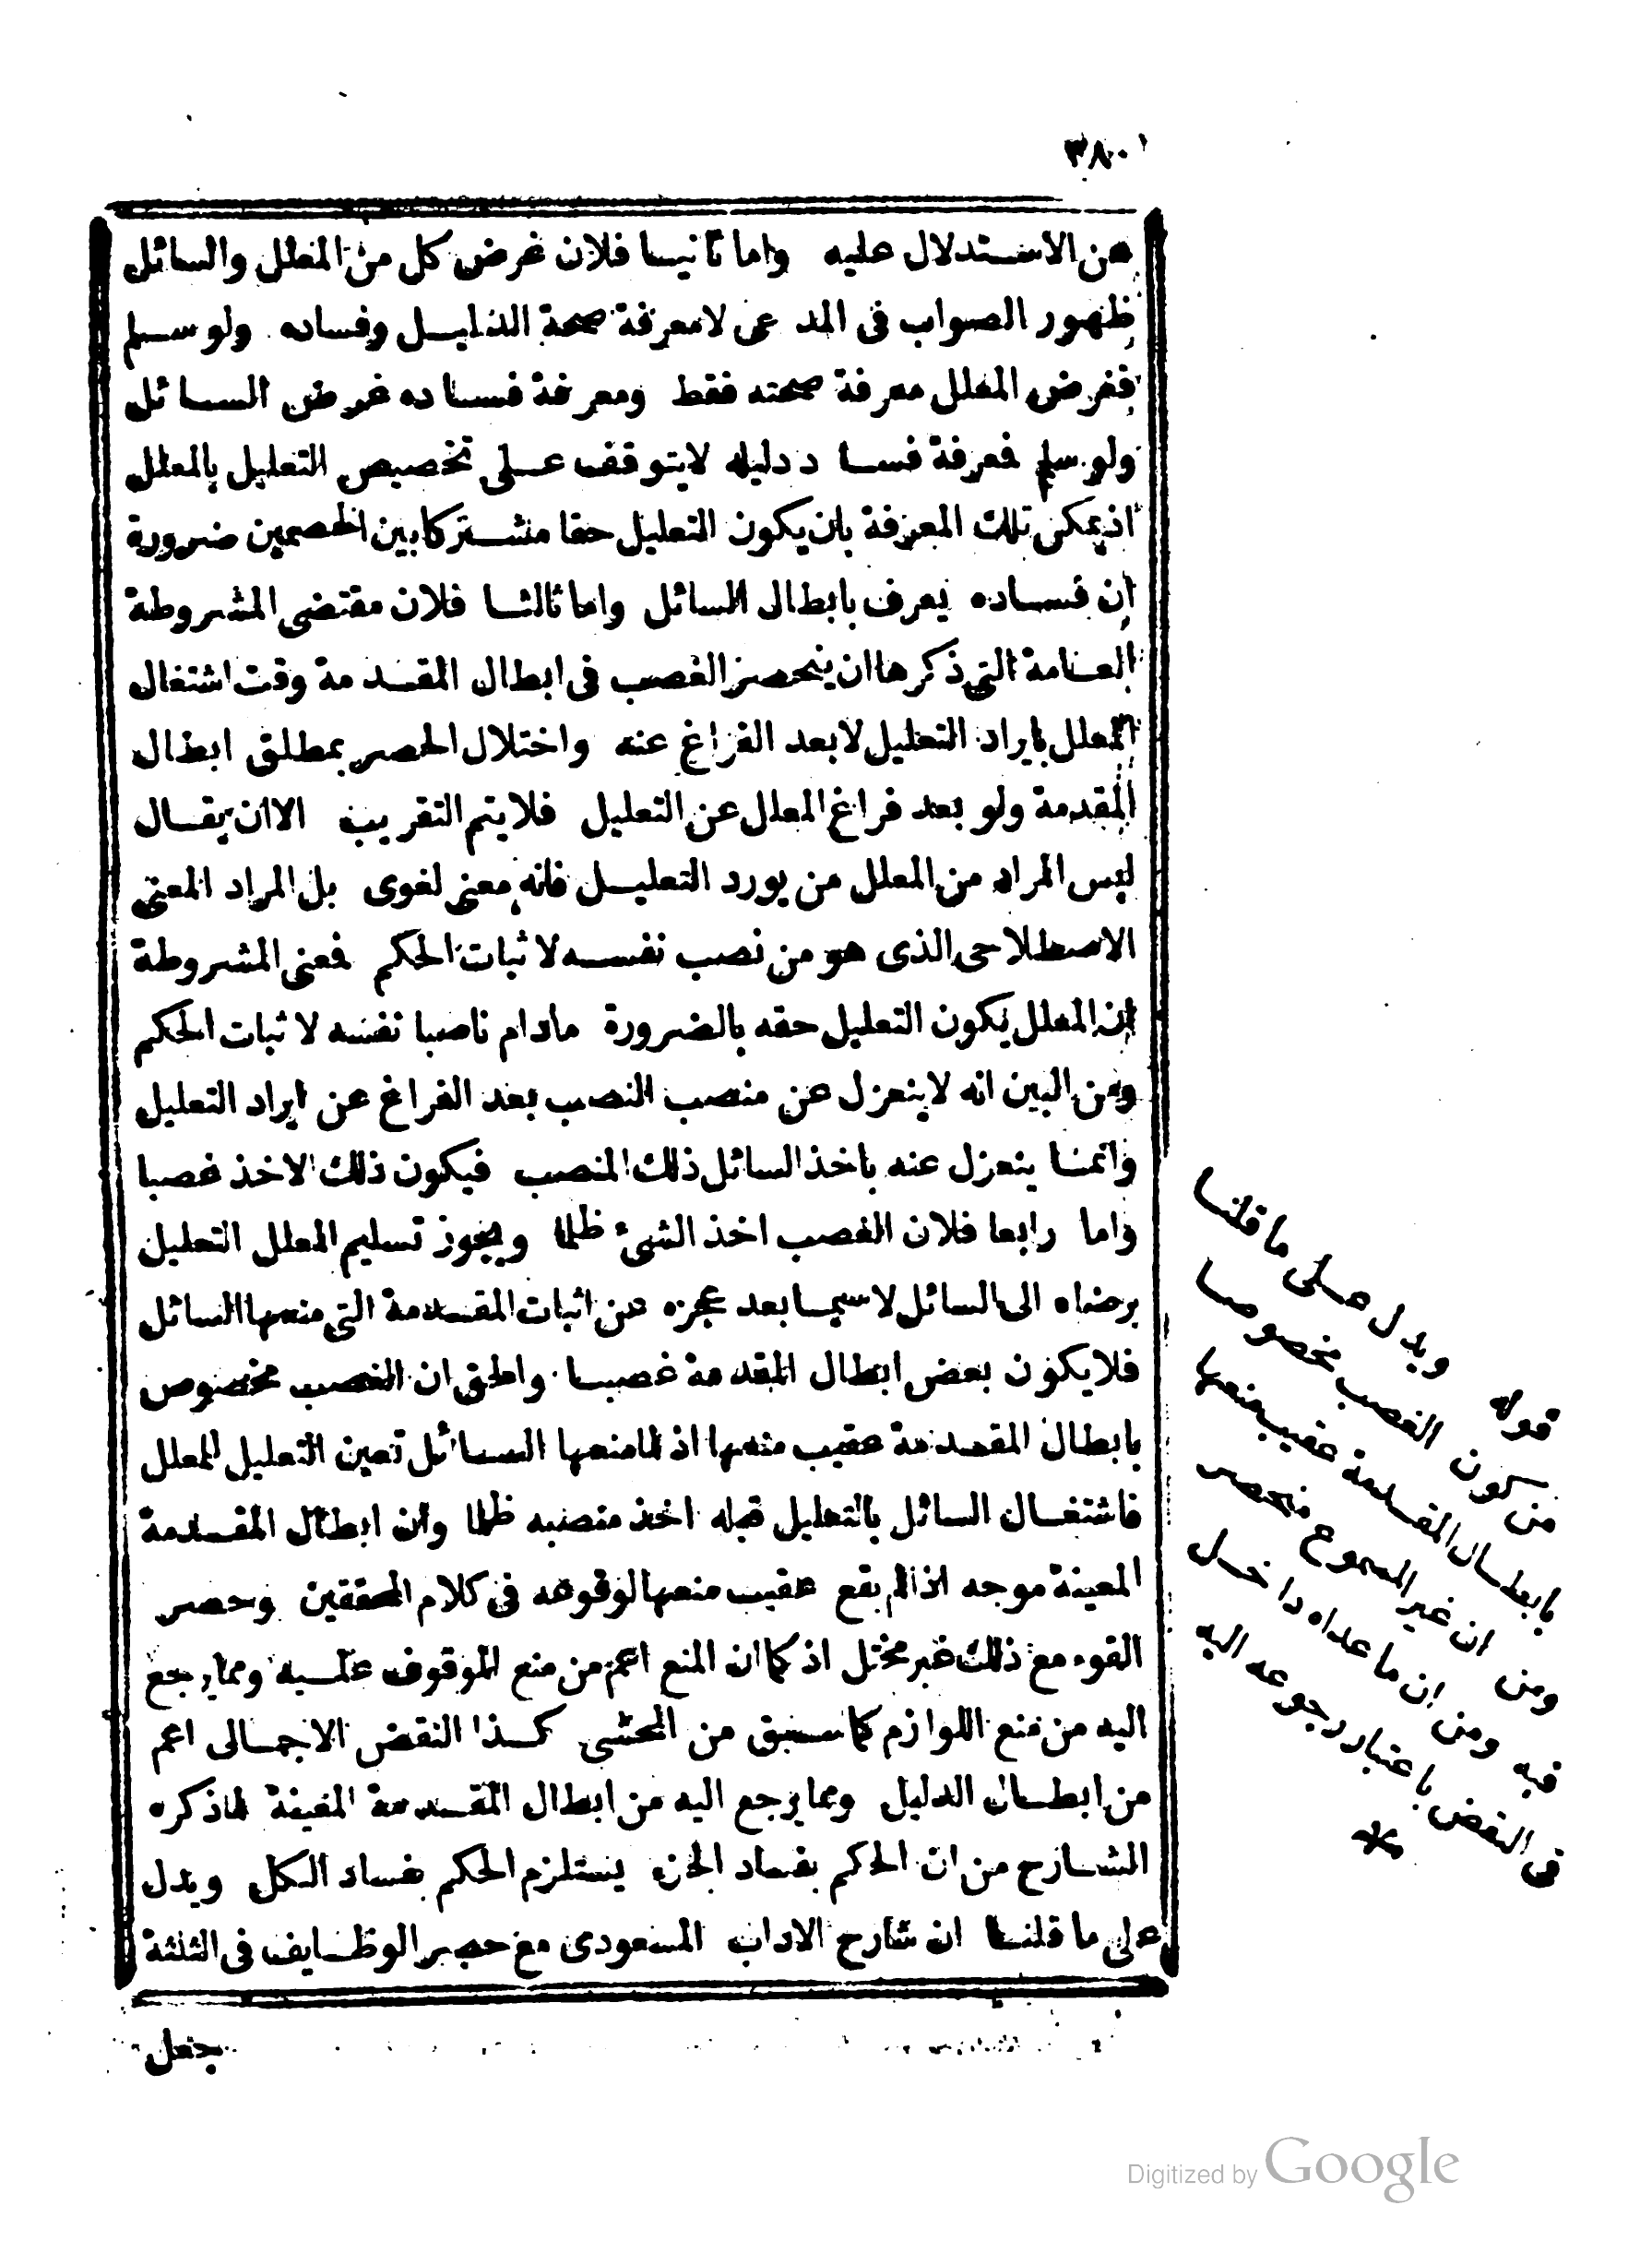 ٣٨٠
عن الاستدلال عليه واما ثانيا فلان غرض كل من المعلل والسائل
ظهور الصواب فى المدعى لا معرفة صحة الدليل وفساده ولو سلم
فغرض المعلل معرفة صحته فقط ومعرفة فساده غرض السائل
ولو سلم فمعرفة فساد دليله لا يتوقف على تخصيص التعليل بالمعلل
اذ يمكن تلك المعرفة بان يكون التعليل حقا مشتركا بين الخصمين ضرورة
ان فساده يعرف بابطال السائل واما ثالثا فلان مقتضى المشروطة
العامة التى ذكرها ان ينحصر الغصب فى ابطال المقدمة وقت اشتغال
المعلل بايراد التعليل لا بعد الفراغ عنه واختلال الحصر بمطلق ابطال
المقدمة ولو بعد فراغ المعلل عن التعليل فلا يتم التقريب الا ان يقال
ليس المراد من المعلل من يورد التعليل فانه معنى لغوى بل المراد المعنى
الاصطلاحى الذى هو من نصب نفسه لاثبات الحكم فمعنى المشروطة
ان المعلل يكون التعليل حقه بالضرورة مادام ناصبا نفسه لاثبات الحكم
ومن البين انه لا ينعزل عن منصب النصب بعد الفراغ عن ايراد التعليل
وانما ينعزل عنه باخذ السائل ذلك المنصب فيكون ذلك الاخذ غصبا
واما رابعا فلان الغصب اخذ الشئ ظلما ويجوز تسليم المعلل التعليل
برضاه الى السائل لا سيما بعد عجزه عن اثبات المقدمة التى منعها السائل
فلا يكون بعض ابطال المقدمة غصبا والحق ان الغصب مخصوص
بابطال المقدمة عقيب منعها اذ لما منعها السائل تعين التعليل للمعلل
فاشتغال السائل بالتعليل قبله اخذ منصبه ظلما وان ابطال المقدمة
المعينة موجه اذا لم يقع عقيب منعها لوقوعه فى كلام المحققين وحصر
القوم مع ذلك غير مختل اذ كما ان المنع اعم من منع الموقوف عليه ومما يرجع
اليه من منع اللوازم كما سبق من المحشى كذا النقض الاجمالى اعم
من ابطال الدليل ومما يرجع اليه من ابطال المقدمة المعينة لما ذكره
الشارح من ان الحكم بفساد الجزء يستلزم الحكم بفساد الكل ويدل
على ما قلنا ان شارح الاداب المسعودى مع حصر الوظايف فى الثلثة
جعل
قوله ويدل على ما قلنا
من كون الغصب مخصوصا
بابطال المقدمة عقيب منعها
ومن ان غير المسموع منحصر
فيه ومن ان ما عداه داخل
فى النقض باعتبار رجوعه اليه
*
Digitized by Google